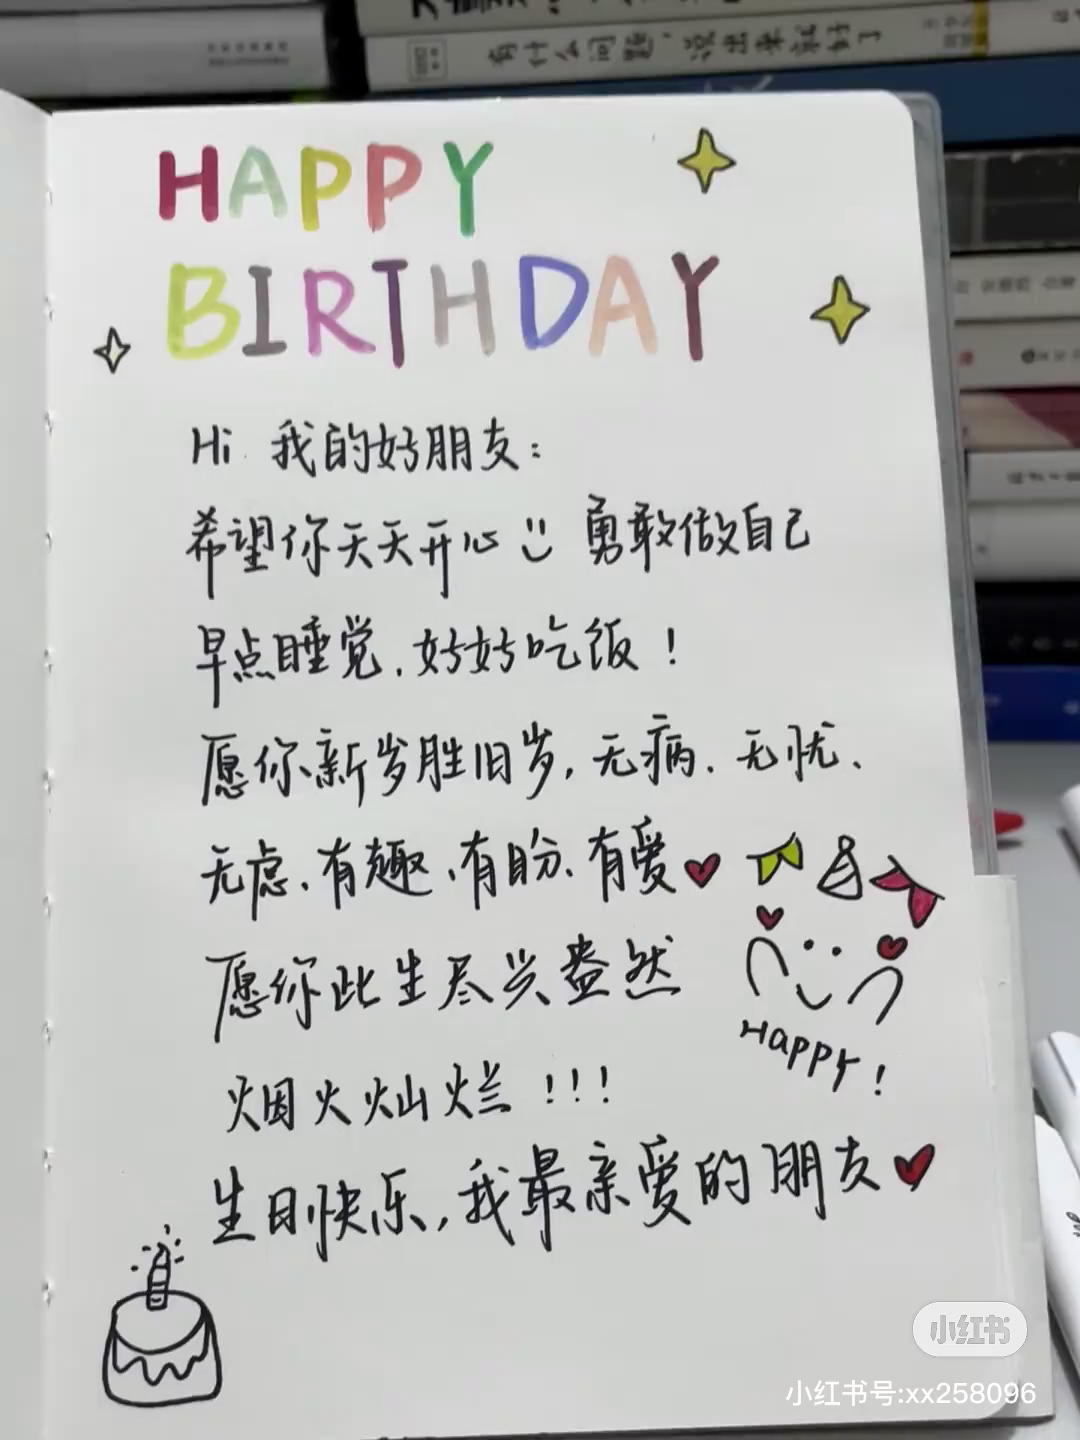 有什么问题,说出来就好了
HAPPY
BIRTHDAY
Hi 我的好朋友:
希望你天天开心 勇敢做自己
早点睡觉.好好吃饭!
愿你新岁胜旧岁,无病、无忧、
无虑、有趣、有盼、有爱
愿你此生尽兴盎然
烟火灿烂!!!
生日快乐,我最亲爱的朋友
Happy!
小红书
小红书号:xx258096